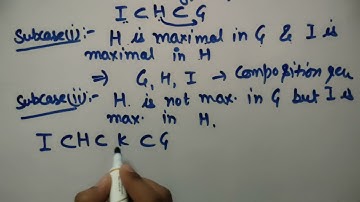 I ⊂ H ⊂ G
Subcase(i):- H is maximal in G & I is
maximal in H
⇒ G, H, I → Composition
Subcase(ii):- H is not max. in G but I is
max. in H.
I ⊂ H ⊂ K ⊂ G